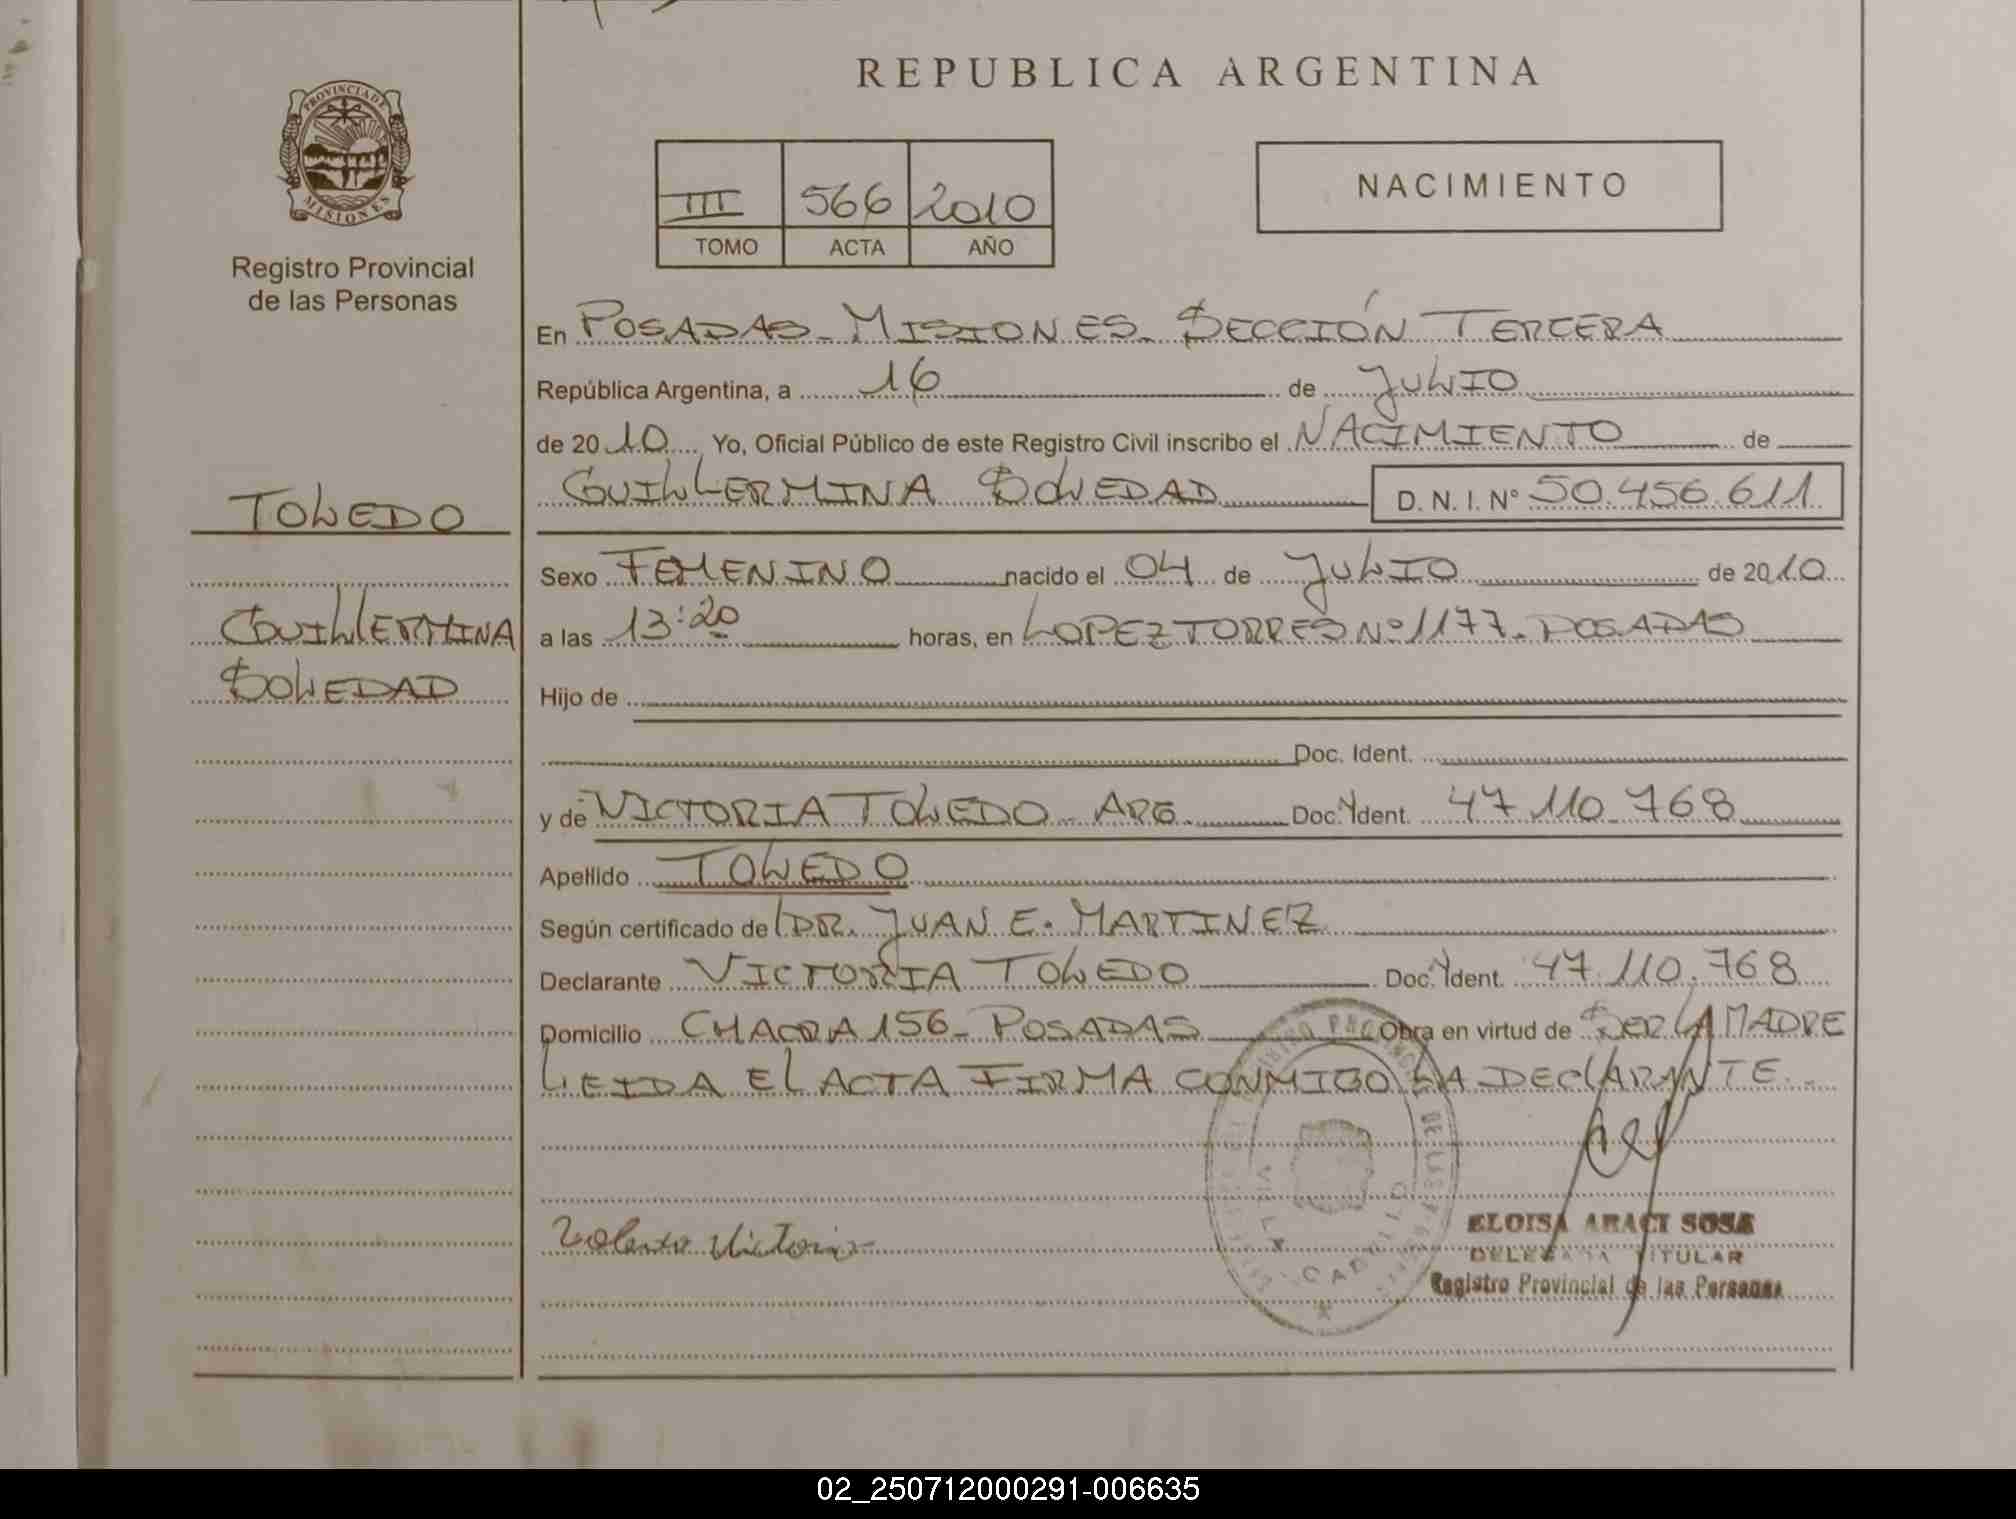 REPUBLICA ARGENTINA
PROVINCIA DE
MISIONES
Registro Provincial
de las Personas
III 566 2010
TOMO ACTA AÑO
NACIMIENTO
En POSADAS - MISIONES - SECCIÓN TERCERA
República Argentina, a 16 de JULIO
de 2010 Yo, Oficial Público de este Registro Civil inscribo el NACIMIENTO de
GUILLERMINA SOLEDAD D. N. I. N° 50.456.611
TOLEDO
GUILLERMINA
SOLEDAD
Sexo FEMENINO nacido el 04 de JULIO de 2010
a las 13:20 horas, en LOPEZ TORRES Nº 1177 - POSADAS
Hijo de
Doc. Ident.
y de VICTORIA TOLEDO - ARG. Doc. Ident. 47.110.768
Apellido TOLEDO
Según certificado de DR. JUAN E. MARTINEZ
Declarante VICTORIA TOLEDO Doc. Ident. 47.110.768
Domicilio CHACRA 156 - POSADAS Obra en virtud de SER LA MADRE
LEIDA EL ACTA FIRMA CONMIGO LA DECLARANTE.
Toledo Victoria
ELOISA ARACI SOSA
DELEGADA TITULAR
Registro Provincial de las Personas
02_250712000291-006635